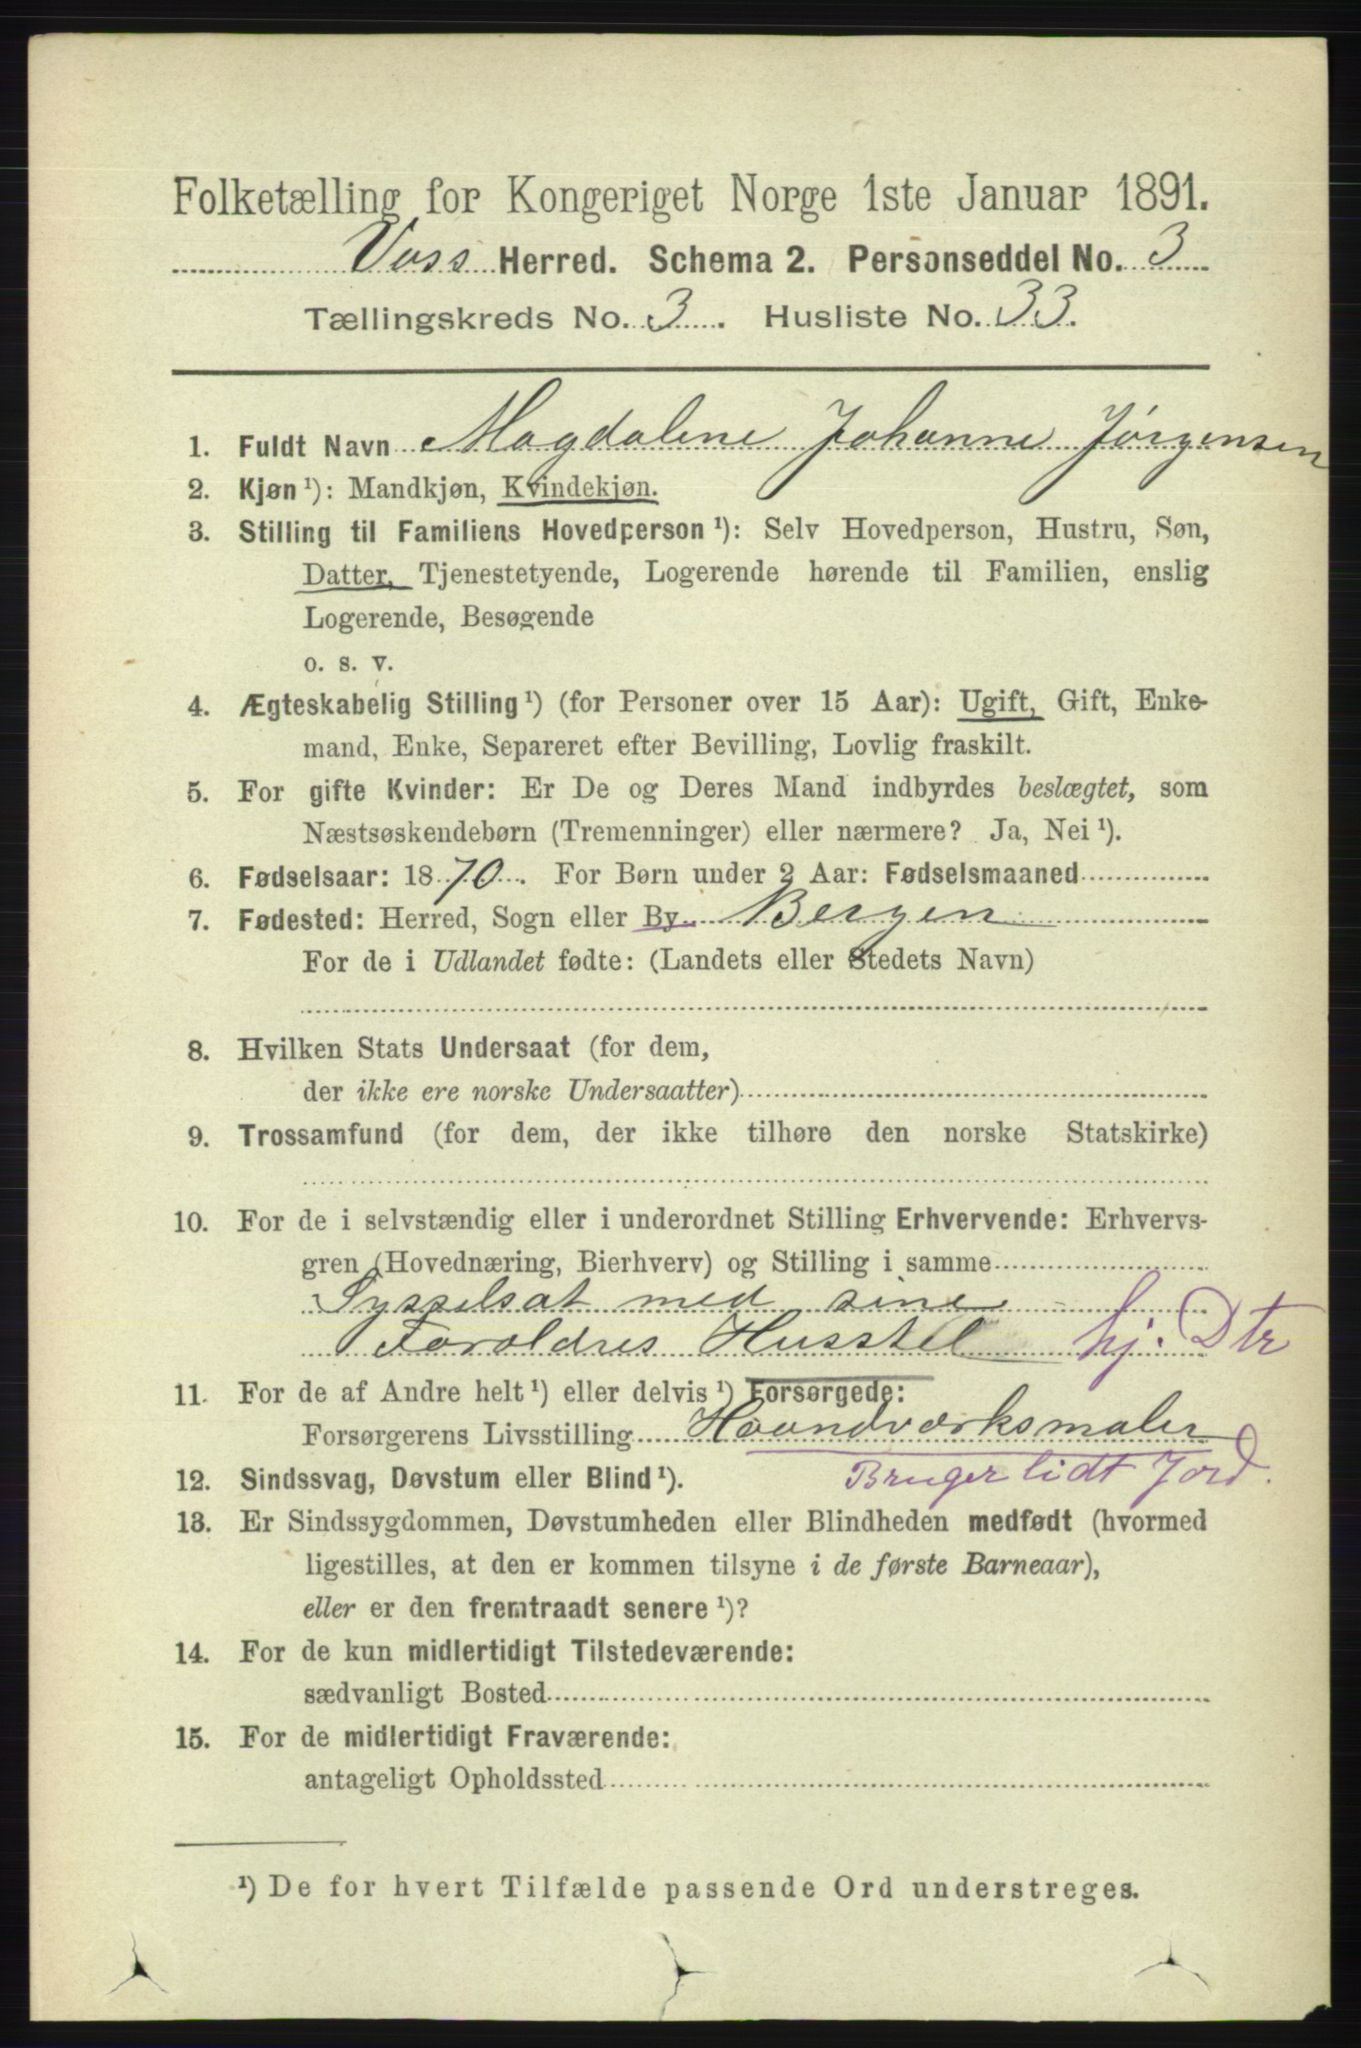 Folketælling for Kongeriget Norge 1ste Januar 1891.
Voss Herred. Schema 2. Personseddel No. 3
Tællingskreds No. 3. Husliste No. 33.
1. Fuldt Navn Magdalene Johanne Jørgensen
2. Kjøn ¹): Mandkjøn, Kvindekjøn.
3. Stilling til Familiens Hovedperson ¹): Selv Hovedperson, Hustru, Søn,
Datter, Tjenestetyende, Logerende hørende til Familien, enslig
Logerende, Besøgende
o. s. v.
4. Ægteskabelig Stilling ¹) (for Personer over 15 Aar): Ugift, Gift, Enke-
mand, Enke, Separeret efter Bevilling, Lovlig fraskilt.
5. For gifte Kvinder: Er De og Deres Mand indbyrdes beslægtet, som
Næstsøskendebørn (Tremenninger) eller nærmere? Ja, Nei ¹).
6. Fødselsaar: 1870. For Børn under 2 Aar: Fødselsmaaned
7. Fødested: Herred, Sogn eller By Bergen
For de i Udlandet fødte: (Landets eller Stedets Navn)
8. Hvilken Stats Undersaat (for dem,
der ikke ere norske Undersaatter)
9. Trossamfund (for dem, der ikke tilhøre den norske Statskirke)
10. For de i selvstændig eller i underordnet Stilling Erhvervende: Erhvervs-
gren (Hovednæring, Bierhverv) og Stilling i samme
Sysselsat med sine
Foroldres Husstel hj. Dtr
11. For de af Andre helt ¹) eller delvis ¹) Forsørgede:
Forsørgerens Livsstilling Haandværksmaler
12. Sindssvag, Døvstum eller Blind ¹). Bruger lidt Jord.
13. Er Sindssygdommen, Døvstumheden eller Blindheden medfødt (hvormed
ligestilles, at den er kommen tilsyne i de første Barneaar),
eller er den fremtraadt senere ¹)?
14. For de kun midlertidigt Tilstedeværende:
sædvanligt Bosted
15. For de midlertidigt Fraværende:
antageligt Opholdssted
¹) De for hvert Tilfælde passende Ord understreges.